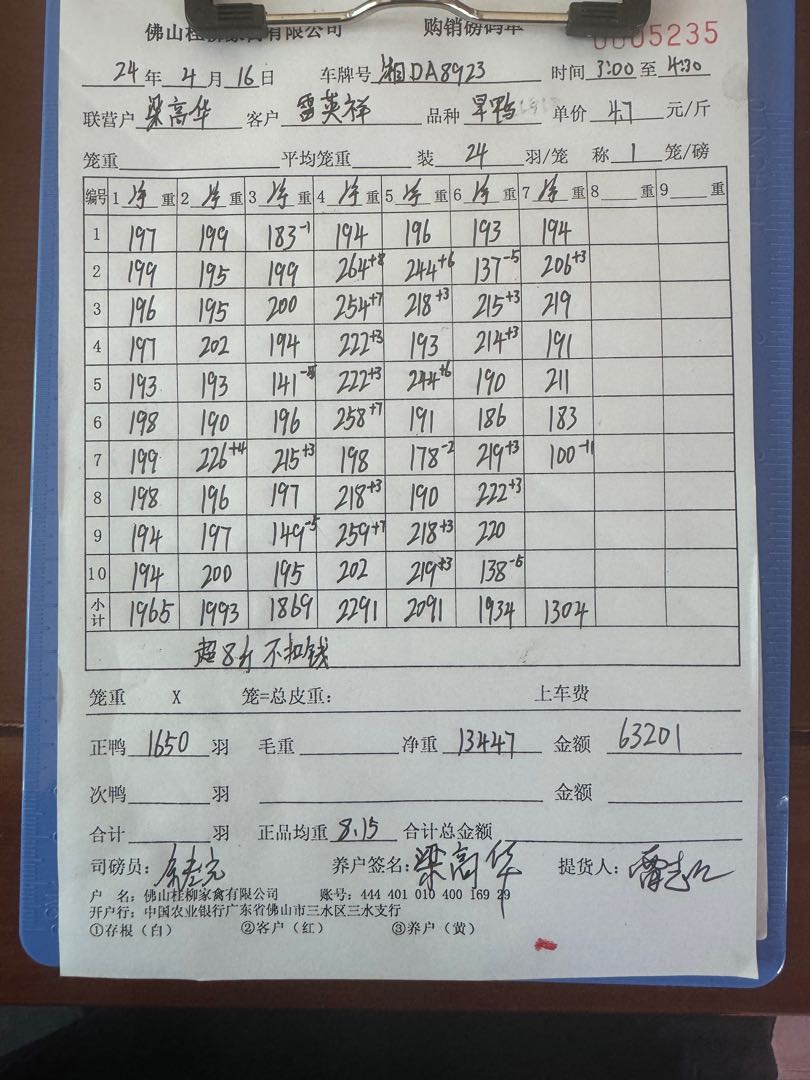 佛山桂柳家禽有限公司 购销磅码单 0005235
24年4月16日 车牌号 湘DA8923 时间 3:00 至 4:30
联营户 梁高华 客户 雷英祥 品种 旱鸭 单价 4.7 元/斤
笼重 平均笼重 装 24 羽/笼 称 1 笼/磅
编号 1 净 重 2 净 重 3 净 重 4 净 重 5 净 重 6 净 重 7 净 重 8 重 9 重
1 197 199 183-1 194 196 193 194
2 199 195 199 264+8 244+6 137-5 206+3
3 196 195 200 254+7 218+3 215+3 219
4 197 202 194 222+3 193 214+3 191
5 193 193 141 222+3 244+6 190 211
6 198 190 196 258+7 191 186 183
7 199 226+4 215+3 198 178-2 219+3 100-11
8 198 196 197 218+3 190 222+3
9 194 197 149-5 259+7 218+3 220
10 194 200 195 202 219+3 138
小计 1965 1993 1869 2291 2091 1934 1304
超8斤不扣钱
笼重 X 笼=总皮重： 上车费
正鸭 1650 羽 毛重 净重 13447 金额 63201
次鸭 羽 金额
合计 羽 正品均重 8.15 合计总金额
司磅员： 养户签名：梁高华 提货人：
户 名：佛山桂柳家禽有限公司 账号：444 401 010 400 169 29
开户行：中国农业银行广东省佛山市三水区三水支行
①存根（白） ②客户（红） ③养户（黄）